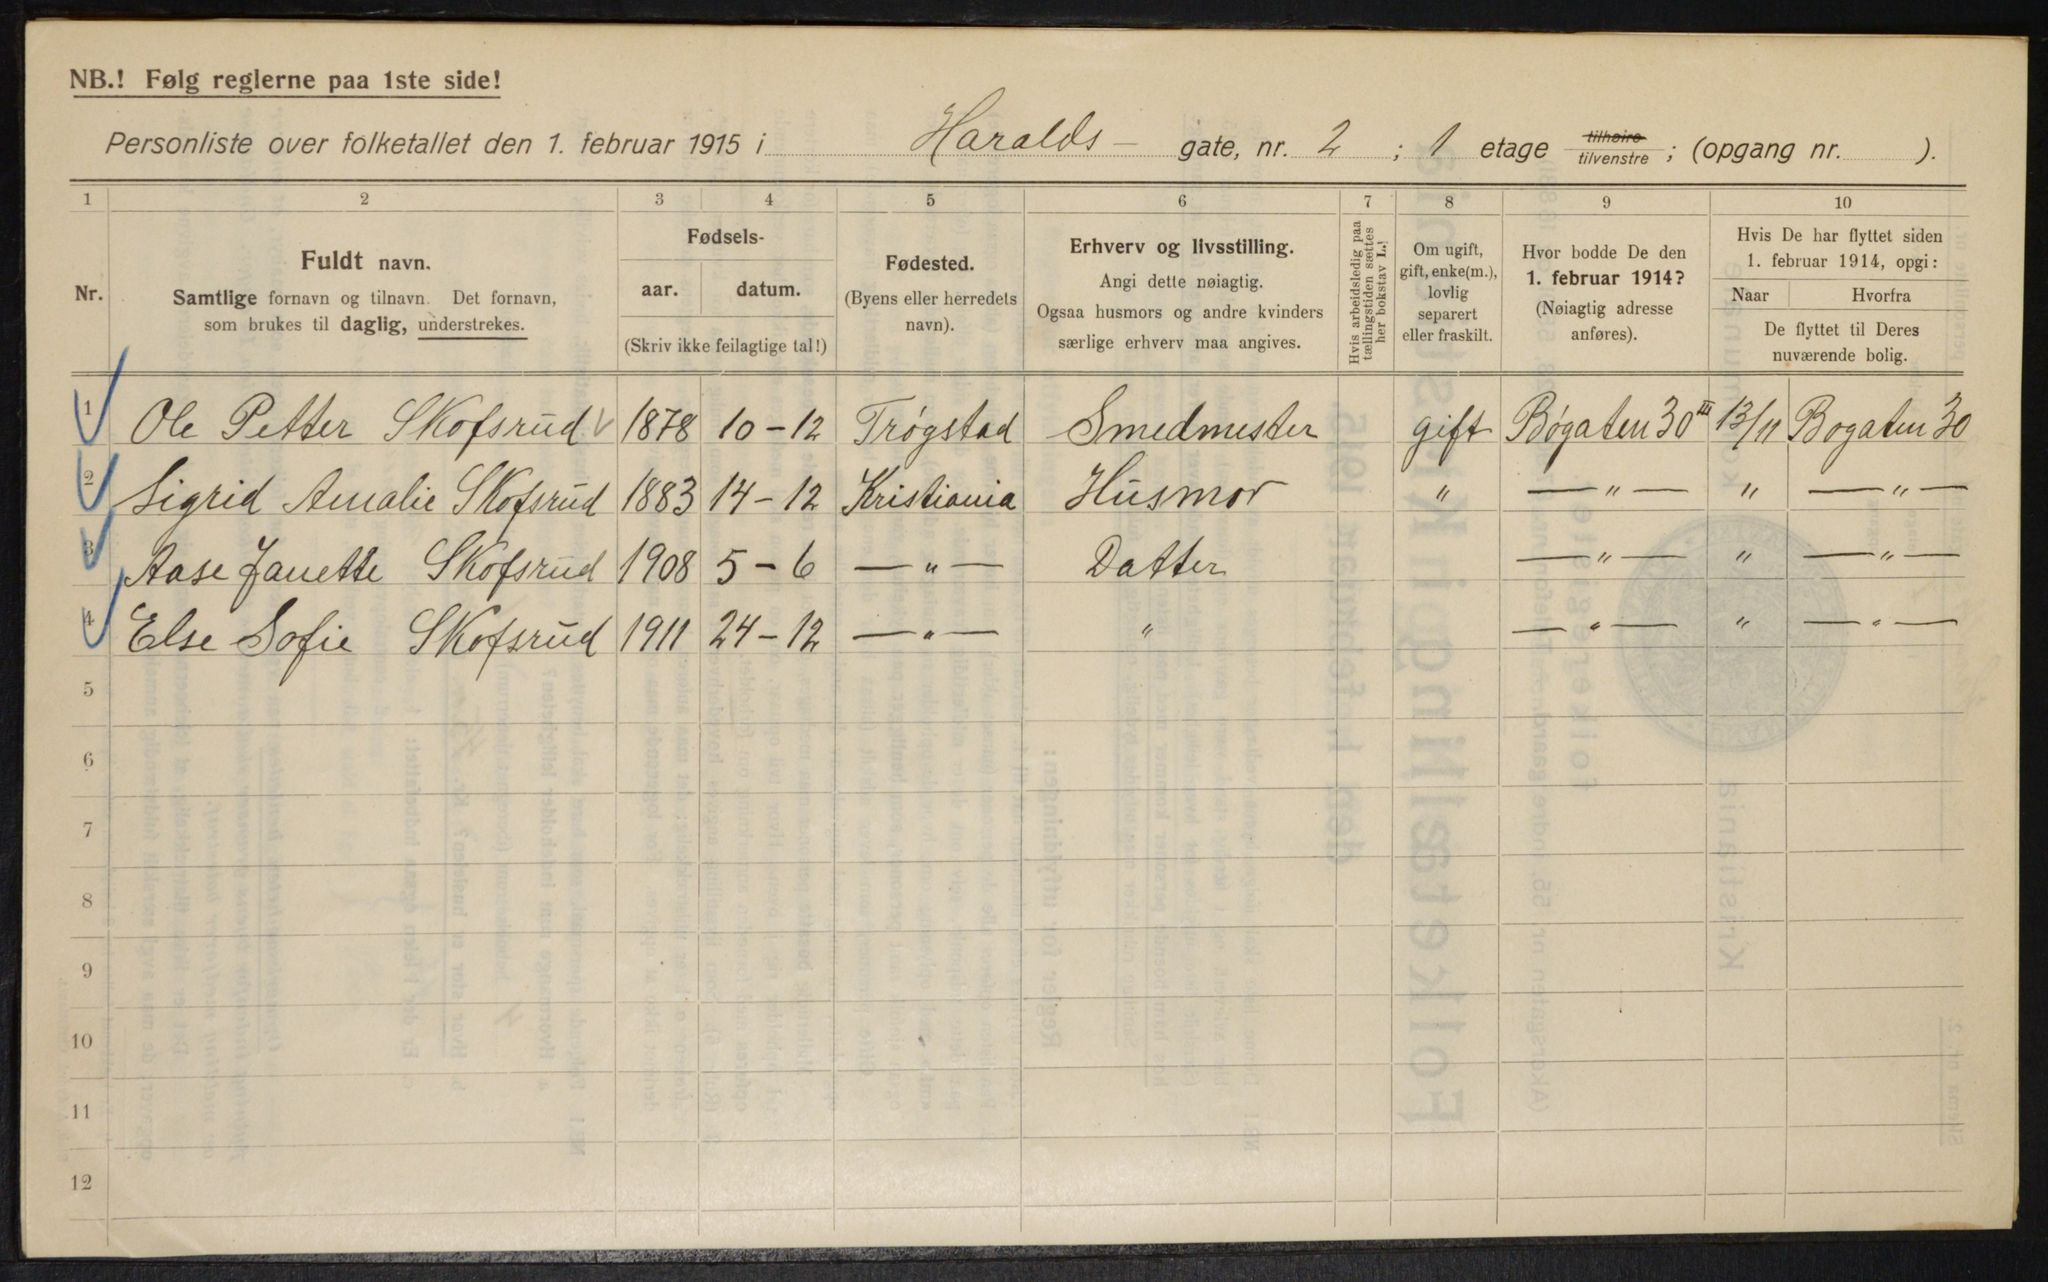 NB.! Følg reglerne paa 1ste side!
Personliste over folketallet den 1. februar 1915 i Haralds - gate, nr. 2 ; 1 etage tilhøire tilvenstre ; (opgang nr. ).
1 2 3 4 5 6 7 8 9 10
Nr.
Fuldt navn.
Samtlige fornavn og tilnavn. Det fornavn,
som brukes til daglig, understrekes.
Fødsels-
aar. datum.
(Skriv ikke feilagtige tal!)
Fødested.
(Byens eller herredets
navn).
Erhverv og livsstilling.
Angi dette nøiagtig.
Ogsaa husmors og andre kvinders
særlige erhverv maa angives.
Hvis arbeidsledig paa
tællingstiden sættes
her bokstav L.!
Om ugift,
gift, enke(m.),
lovlig
separert
eller fraskilt.
Hvor bodde De den
1. februar 1914?
(Nøiagtig adresse
anføres).
Hvis De har flyttet siden
1. februar 1914, opgi:
Naar Hvorfra
De flyttet til Deres
nuværende bolig.
1 Ole Petter Skofsrud 1878 10-12 Trøgstad Smedmester gift Bøgaten 30 III 13/11 Bogaten 30
2 Sigrid Amalie Skofsrud 1883 14-12 Kristiania Husmor " — " — " — " —
3 Aase Janette Skofsrud 1908 5-6 — " — Datter — " — " — " —
4 Else Sofie Skofsrud 1911 24-12 — " — " — " — " — " —
5
6
7
8
9
10
11
12